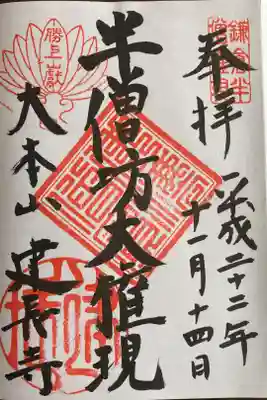 奉拝
平成二十二年
十一月十四日
半僧坊大権現
大本山 建長寺
勝上嶽